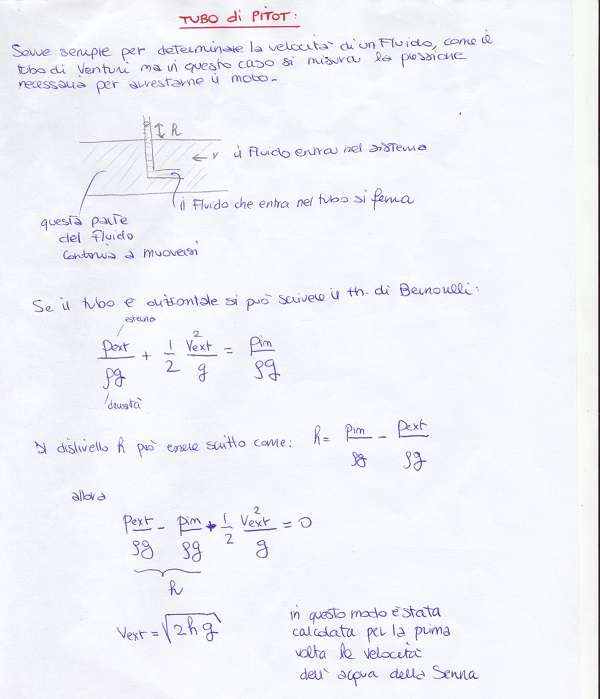 TUBO di PITOT:
Serve sempre per determinare la velocità di un Fluido, come il
tubo di Venturi ma in questo caso si misura la pressione
necessaria per arrestarne il moto.
h
v
il Fluido entra nel sistema
il Fluido che entra nel tubo si ferma
questa parte
del fluido
continua a muoversi
Se il tubo è orizzontale si può scrivere il th. di Bernoulli:
esterna
pext/ρg + 1/2 Vext²/g = pin/ρg
densità
Il dislivello h può essere scritto come: h = pin/ρg - pext/ρg
allora
pext/ρg - pin/ρg + 1/2 Vext²/g = 0
h
Vext = √2hg
in questo modo è stata
calcolata per la prima
volta la velocità
dell' acqua della Senna